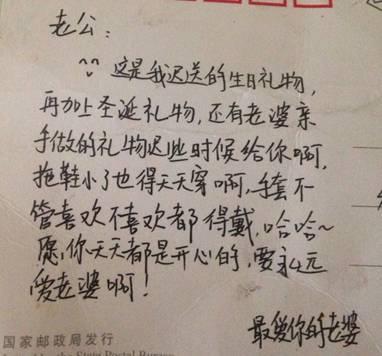 老公：
^^ 这是我迟送的生日礼物，
再加上圣诞礼物，还有老婆亲
手做的礼物迟些时候给你啊，
拖鞋小了也得天天穿啊，手套不
管喜欢不喜欢都得戴，哈哈~
愿你天天都是开心的，要永远
爱老婆啊！
最爱你的老婆
国家邮政局发行
the State Postal Bureau